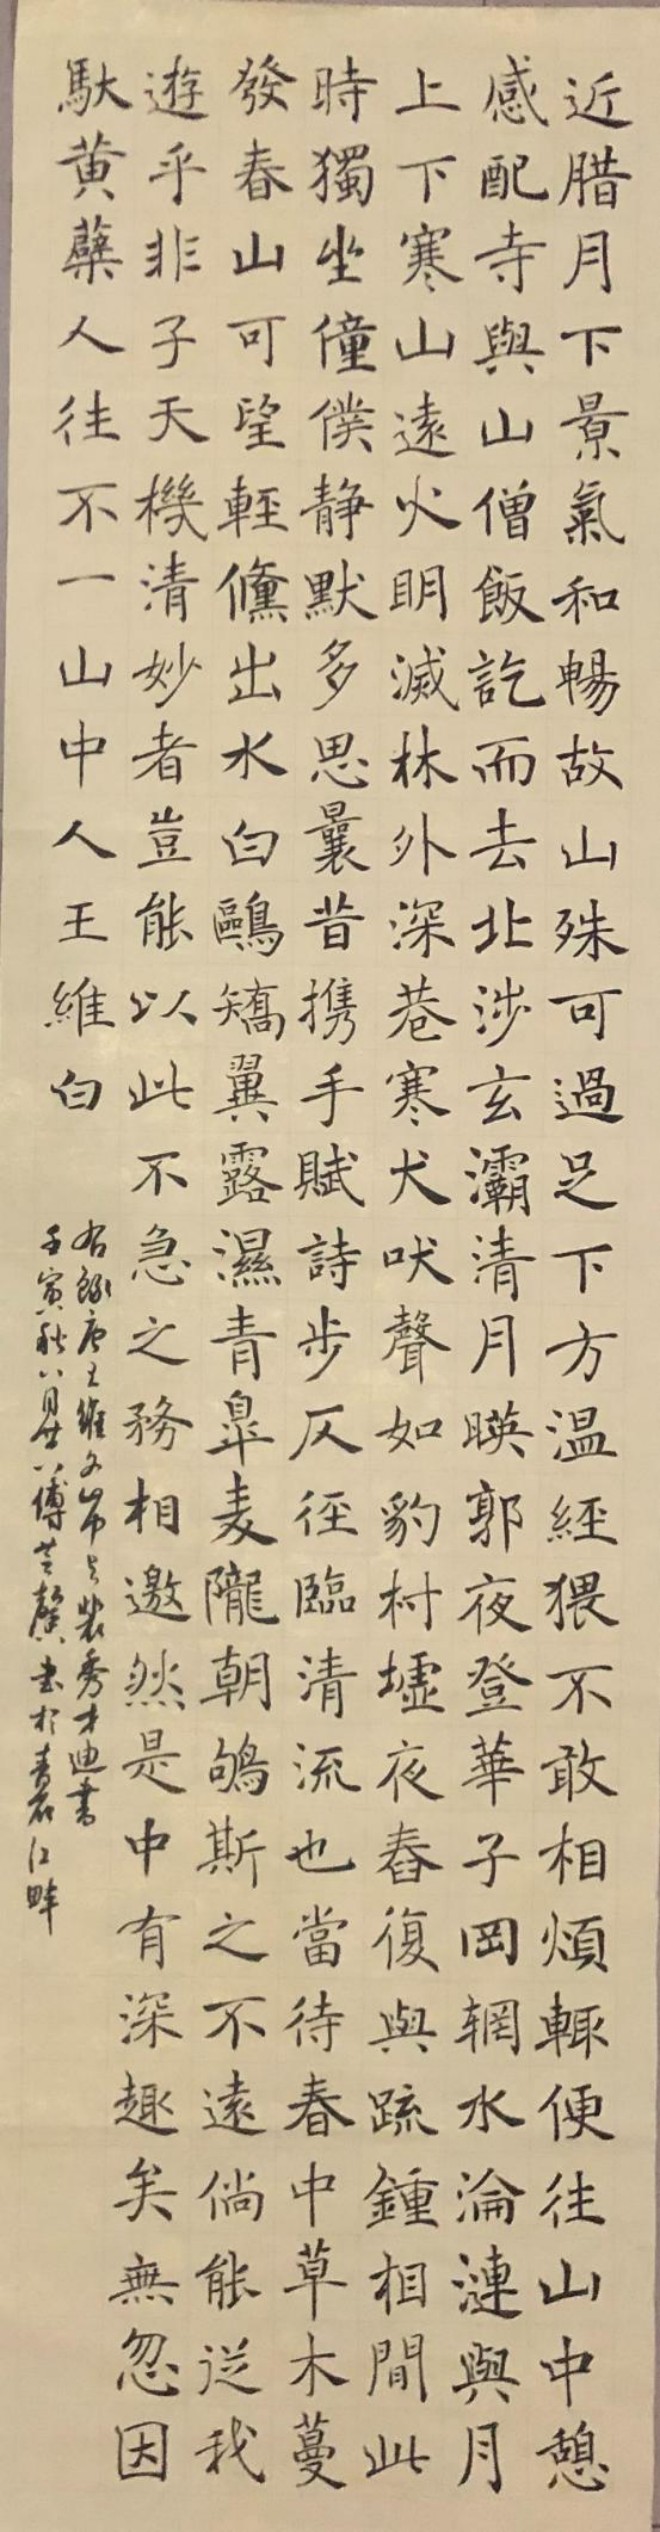 近腊月下景氣和暢故山殊可過足下方温經猥不敢相煩輙便往山中憩
感配寺與山僧飯訖而去北涉玄灞清月暎郭夜登華子岡輞水淪漣與月
上下寒山遠火明滅林外深巷寒犬吠聲如豹村墟夜舂復與疏鍾相間此
時獨坐僮僕静默多思曩昔携手賦詩步仄徑臨清流也當待春中草木蔓
發春山可望輕鯈出水白鷗矯翼露濕青皐麦隴朝鴝斯之不遠倘能從我
遊乎非子天機清妙者豈能以此不急之務相邀然是中有深趣矣無忽因
馱黄蘗人往不一山中人王維白
右録唐王維文山中与裴秀才迪書
壬寅秋八月廿八傅芝馨書於袁江畔